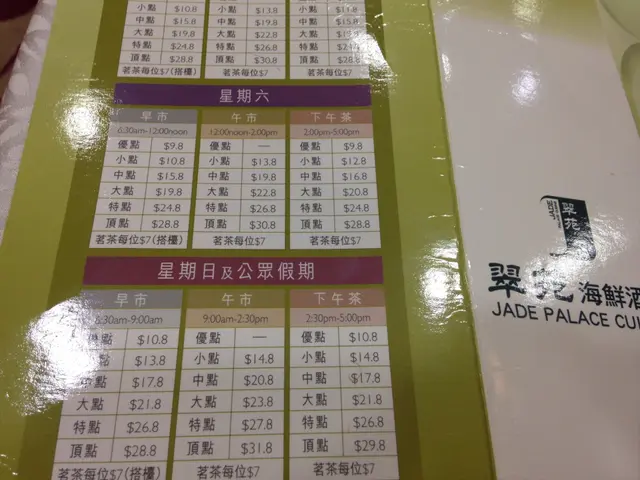 小點 $10.8 小點 $13.8
中點 $15.8 中點 $19.8 中點
大點 $19.8 大點 $22.8 大點
特點 $24.8 特點 $26.8 特點
頂點 $28.8 頂點 $30.8 頂點 $28.8
茗茶每位$7(搭檯) 茗茶每位$7 茗茶每位$7
星期六
早市 午市 下午茶
6:30am-12:00noon 12:00noon-2:00pm 2:00pm-5:00pm
優點 $9.8 優點 — 優點 $9.8
小點 $10.8 小點 $13.8 小點 $12.8
中點 $15.8 中點 $19.8 中點 $16.8
大點 $19.8 大點 $22.8 大點 $20.8
特點 $24.8 特點 $26.8 特點 $24.8
頂點 $28.8 頂點 $30.8 頂點 $28.8
茗茶每位$7(搭檯) 茗茶每位$7 茗茶每位$7
星期日及公眾假期
早市 午市 下午茶
6:30am-9:00am 9:00am-2:30pm 2:30pm-5:00pm
優點 $10.8 優點 — 優點 $10.8
小點 $13.8 小點 $14.8 小點 $14.8
中點 $17.8 中點 $20.8 中點 $17.8
大點 $21.8 大點 $23.8 大點 $21.8
特點 $26.8 特點 $27.8 特點 $26.8
頂點 $28.8 頂點 $31.8 頂點 $29.8
茗茶每位$7(搭檯) 茗茶每位$7 茗茶每位$7
翠花
翠 海鮮酒
JADE PALACE CUI